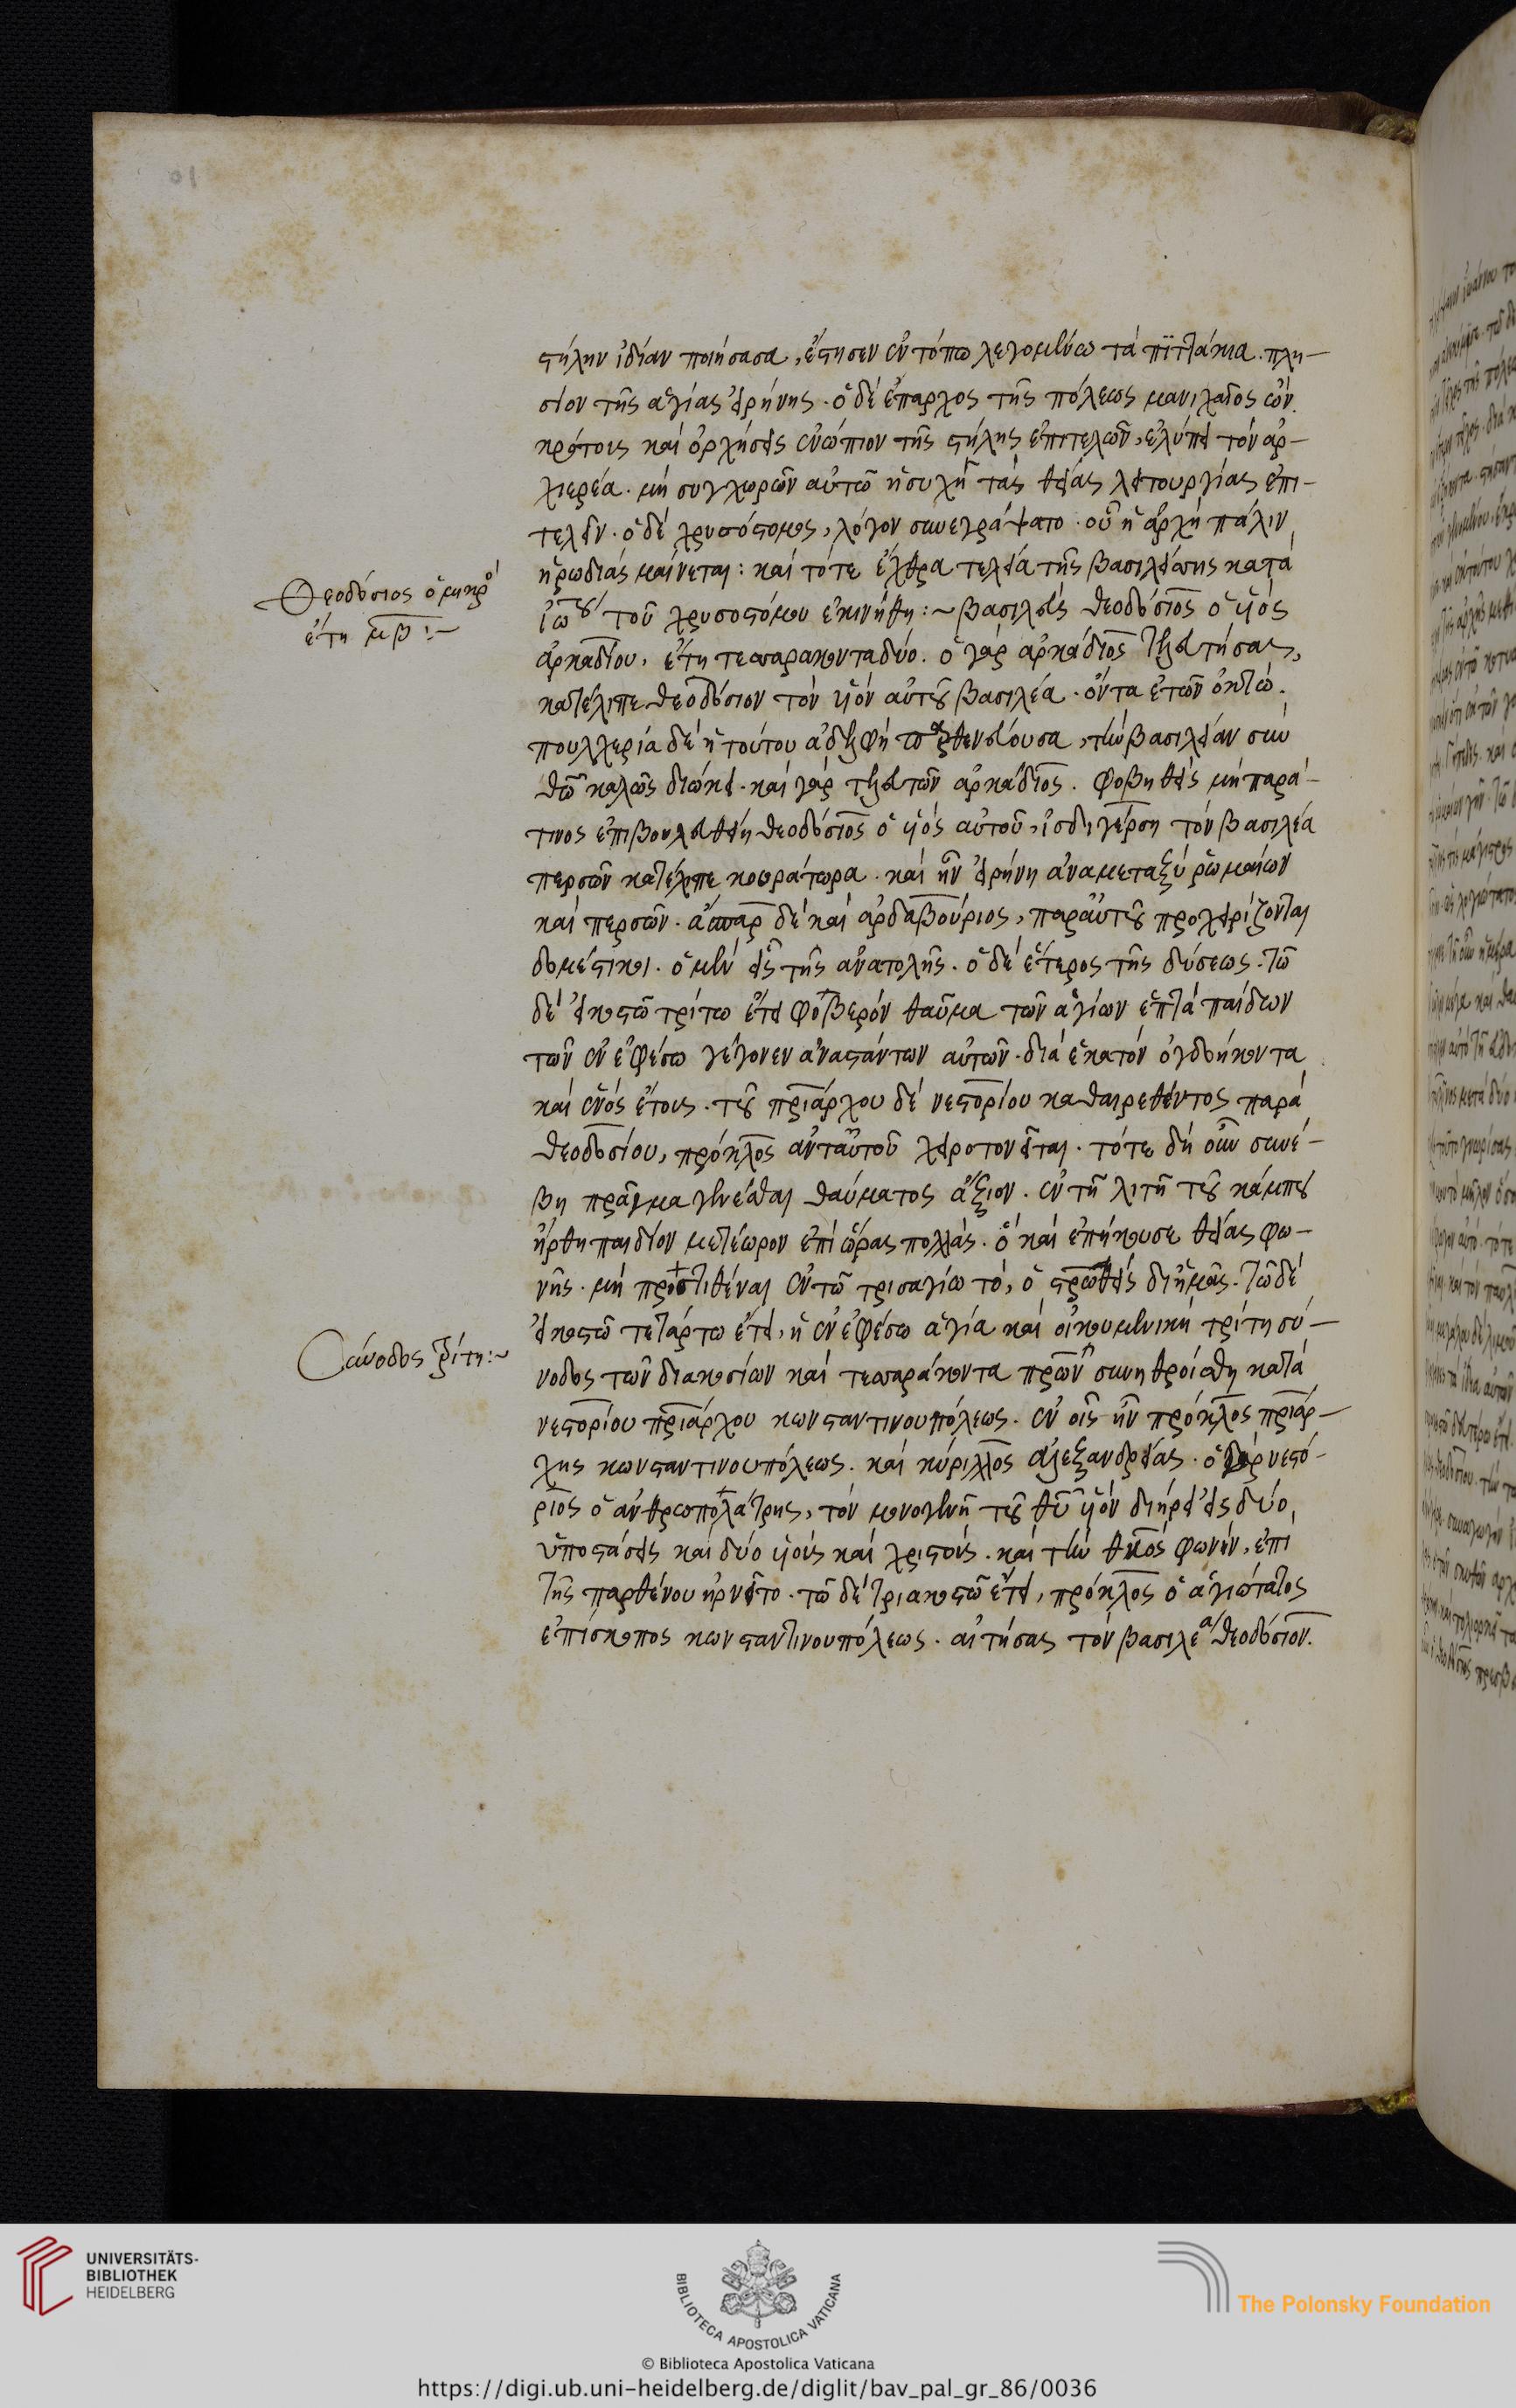 στήλην ἰδίαν ποιήσασα, ἔστησεν ἐν τόπω λεγομένω τὰ πϊττάκια. πλη-
σίον τῆς ἁγίας εἰρήνης. ὁ δὲ ἔπαρχος τῆς πόλεως μανιχαῖος ὢν.
κρότους καὶ ὀρχήσεις ἐνώπιον τῆς στήλης ἐπιτελῶν, ἐλύπει τὸν ἀρ-
χιερέα. μὴ συγχωρῶν αὐτῶ ἡσυχῆ τὰς θείας λειτουργίας ἐπι-
τελεῖν. ὁ δὲ χρυσόστομος, λόγον συνεγράψατο. οὗ ἡ ἀρχὴ πάλιν
ἡρωδιὰς μαίνεται: καὶ τότε ἔχθρα τελεία τῆς βασιλείσης κατὰ
ἰω τοῦ χρυσοστόμου ἐκινήθη:~ βασιλεὺς θεοδόσιος ὁ υἱὸς
Θεοδόσιος ὁ μικρὸ
ἔτη μβ:~
ἀρκαδίου, ἔτη τεσσαρακονταδύο. ὁ γὰρ ἀρκάδιος τελευτήσας,
κατέλιπε θεοδόσιον τὸν υἱὸν αὐτοῦ βασιλέα. ὄντα ἐτῶν ὀκτώ.
πουλχερία δὲ ἡ τούτου ἀδελφὴ παρθενεύουσα, τὴν βασιλείαν σὺν
θῶ καλῶς διώκει. καὶ γὰρ τελευτῶν ἀρκάδιος. φοβηθεὶς μὴ παρά
τινος ἐπιβουλευθείη θεοδόσιος ὁ υἱὸς αὐτοῦ, ἰσδιγέρση τὸν βασιλέα
περσῶν κατέλιπε κουράτωρα. καὶ ἦν εἰρήνη ἀναμεταξὺ ῥωμαίων
καὶ περσῶν. ἄσπαρ δὲ καὶ ἀρδαβούριος, παρ αὐτοῦ προχειρίζονται
δομέστικοι. ὁ μὲν εἷς τῆς ἀνατολῆς. ὁ δὲ ἕτερος τῆς δύσεως. τῶ
δὲ εἰκοστῶ τρίτω ἔτει φοβερὸν θαῦμα τῶν ἁγίων ἑπτὰ παίδων
τῶν ἐν ἐφέσω γέγονεν ἀναστάντων αὐτῶν. διὰ ἑκατὸν ὀγδοήκοντα
καὶ ἑνὸς ἔτους. τοῦ πριάρχου δὲ νεστορίου καθαιρεθέντος παρὰ
θεοδοσίου, πρόκλος ἀντ αὐτοῦ χειροτονεῖται. τότε δὴ οὖν συνέ-
βη πρᾶγμα γενέσθαι θαύματος ἄξιον. ἐν τῆ λιτῆ τοῦ κάμπου
ἤρθη παιδίον μετέωρον ἐπὶ ὥρας πολλάς. ὃ καὶ ἐπήκουσε θείας φω-
νῆς. μὴ προστιθέναι ἐν τῶ τρισαγίω τό, ὁ στρωθεὶς δι ἡμᾶς. τῶ δὲ
εἰκοστῶ τετάρτω ἔτει, ἡ ἐν ἐφέσω ἁγία καὶ οἰκουμενικὴ τρίτη σύ-
Σύνοδος τρίτη:~
νοδος τῶν διακοσίων καὶ τεσσαράκοντα πρων συνηθροίσθη κατὰ
νεστορίου πριάρχου κωνσταντινουπόλεως. ἐν οἷς ἦν πρόκλος πριάρ-
χης κωνσταντινουπόλεως. καὶ κύριλλος ἀλεξανδρείας. ὁ γὰρ νεστό-
ριος ὁ ἀνθρωπολάτρης, τὸν μονογενῆ τοῦ θυ υἱὸν διήρει εἰς δύο
ὑποστάσεις καὶ δύο υἱοὺς καὶ χριστούς. καὶ τὴν θκος φωνήν, ἐπὶ
τῆς παρθένου ἠρνεῖτο. τῶ δὲ τριακοστῶ ἔτει, πρόκλος ὁ ἁγιώτατος
ἐπίσκοπος κωνσταντινουπόλεως. αἰτήσας τὸν βασιλέα θεοδόσιον.
UNIVERSITÄTS-
BIBLIOTHEK
HEIDELBERG
BIBLIOTECA APOSTOLICA VATICANA
The Polonsky Foundation
© Biblioteca Apostolica Vaticana
https://digi.ub.uni-heidelberg.de/diglit/bav_pal_gr_86/0036